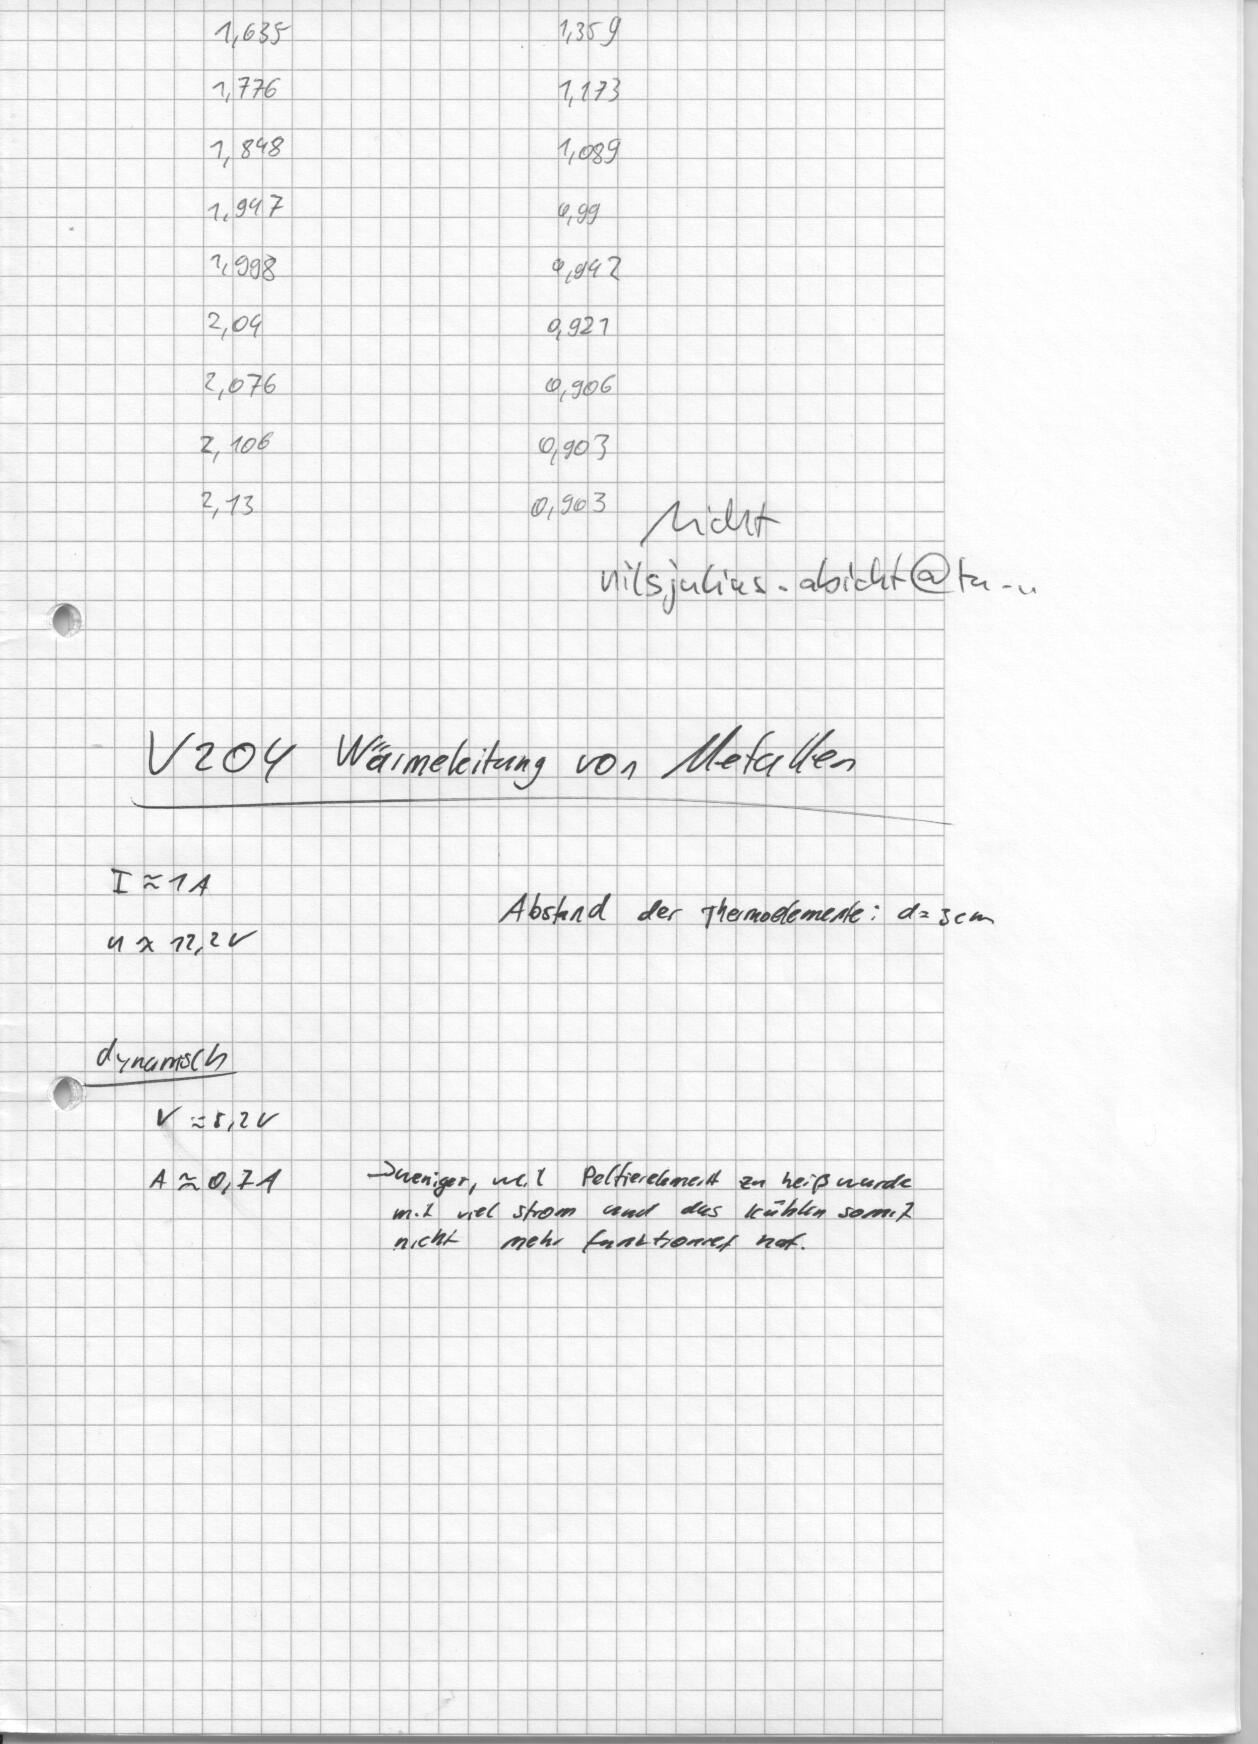 1,635 1,359
1,776 1,173
1,848 1,089
1,947 0,99
1,998 0,942
2,04 0,921
2,076 0,906
2,106 0,903
2,13 0,903
nilsjulius.abicht@tu-..
V204 Wärmeleitung von Metallen
I ≈ 1A
Abstand der Thermoelemente: d = 3cm
U ≈ 12,2V
dynamisch
V ≈ 8,2V
A ≈ 0,7A → weniger, weil Peltierelement zu heiß wurde
mit viel strom und das kühlen somit
nicht mehr funktioniert hat.